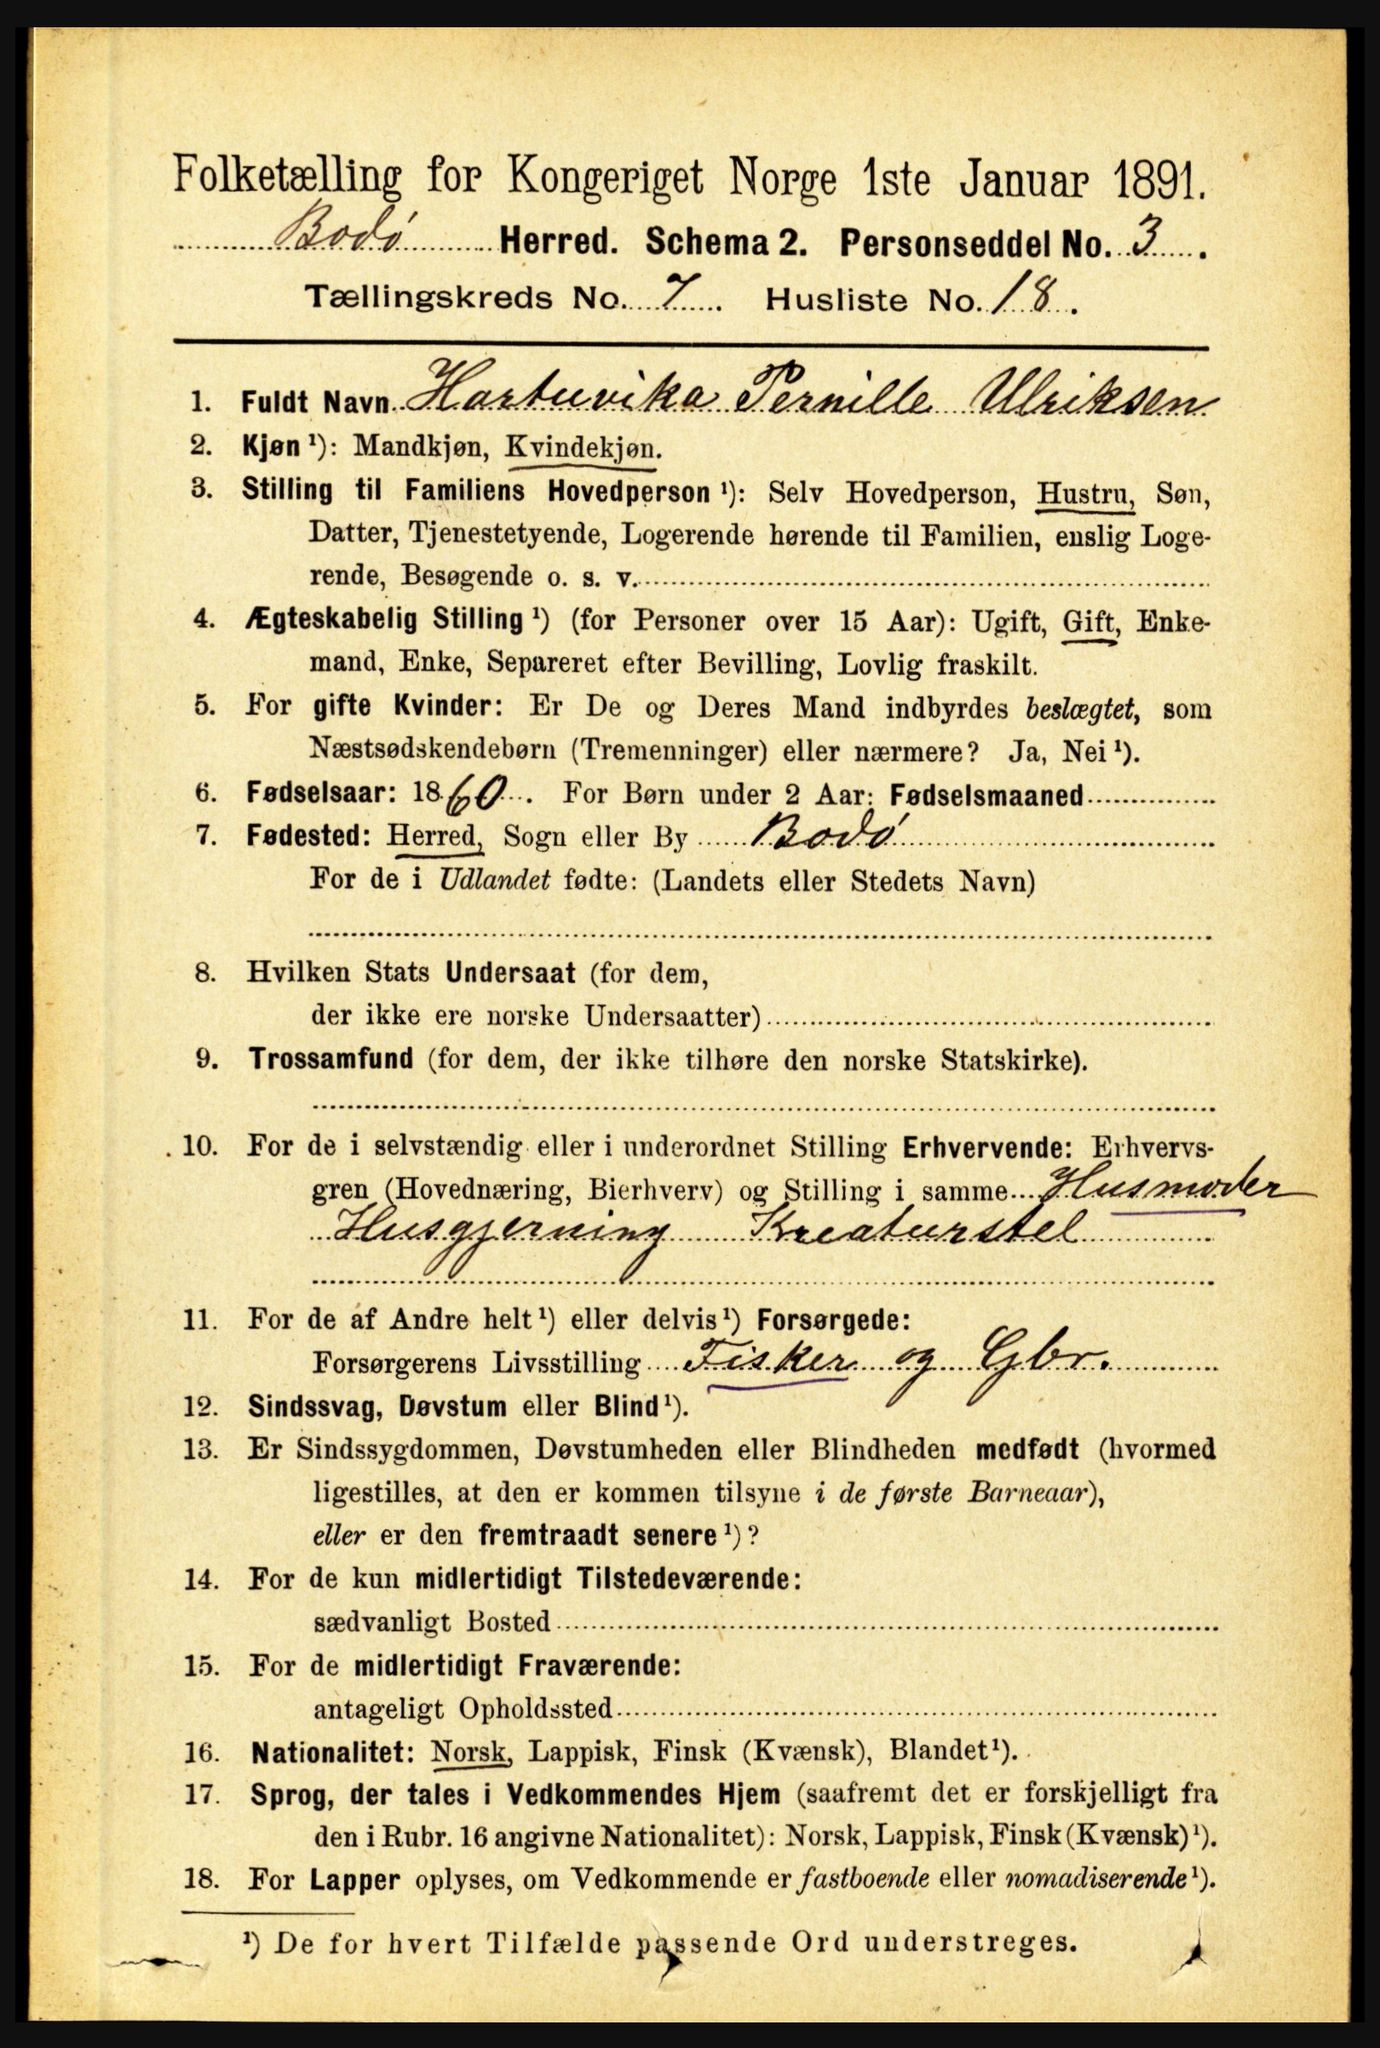 Folketælling for Kongeriget Norge 1ste Januar 1891.
Bodø Herred. Schema 2. Personseddel No. 3.
Tællingskreds No. 7. Husliste No. 18.
1. Fuldt Navn Hartuvika Pernille Ulriksen
2. Kjøn ¹): Mandkjøn, Kvindekjøn.
3. Stilling til Familiens Hovedperson ¹): Selv Hovedperson, Hustru, Søn,
Datter, Tjenestetyende, Logerende hørende til Familien, enslig Loge-
rende, Besøgende o. s. v.
4. Ægteskabelig Stilling ¹) (for Personer over 15 Aar): Ugift, Gift, Enke-
mand, Enke, Separeret efter Bevilling, Lovlig fraskilt.
5. For gifte Kvinder: Er De og Deres Mand indbyrdes beslægtet, som
Næstsødskendebørn (Tremenninger) eller nærmere? Ja, Nei ¹).
6. Fødselsaar: 1860. For Børn under 2 Aar: Fødselsmaaned
7. Fødested: Herred, Sogn eller By Bodø
For de i Udlandet fødte: (Landets eller Stedets Navn)
8. Hvilken Stats Undersaat (for dem,
der ikke ere norske Undersaatter)
9. Trossamfund (for dem, der ikke tilhøre den norske Statskirke).
10. For de i selvstændig eller i underordnet Stilling Erhvervende: Erhvervs-
gren (Hovednæring, Bierhverv) og Stilling i samme Husmoder
Husgjerning Kreaturstel
11. For de af Andre helt ¹) eller delvis ¹) Forsørgede:
Forsørgerens Livsstilling Fisker og Gbr.
12. Sindssvag, Døvstum eller Blind ¹).
13. Er Sindssygdommen, Døvstumheden eller Blindheden medfødt (hvormed
ligestilles, at den er kommen tilsyne i de første Barneaar),
eller er den fremtraadt senere ¹)?
14. For de kun midlertidigt Tilstedeværende:
sædvanligt Bosted
15. For de midlertidigt Fraværende:
antageligt Opholdssted
16. Nationalitet: Norsk, Lappisk, Finsk (Kvænsk), Blandet ¹).
17. Sprog, der tales i Vedkommendes Hjem (saafremt det er forskjelligt fra
den i Rubr. 16 angivne Nationalitet): Norsk, Lappisk, Finsk (Kvænsk) ¹).
18. For Lapper oplyses, om Vedkommende er fastboende eller nomadiserende ¹).
¹) De for hvert Tilfælde passende Ord understreges.